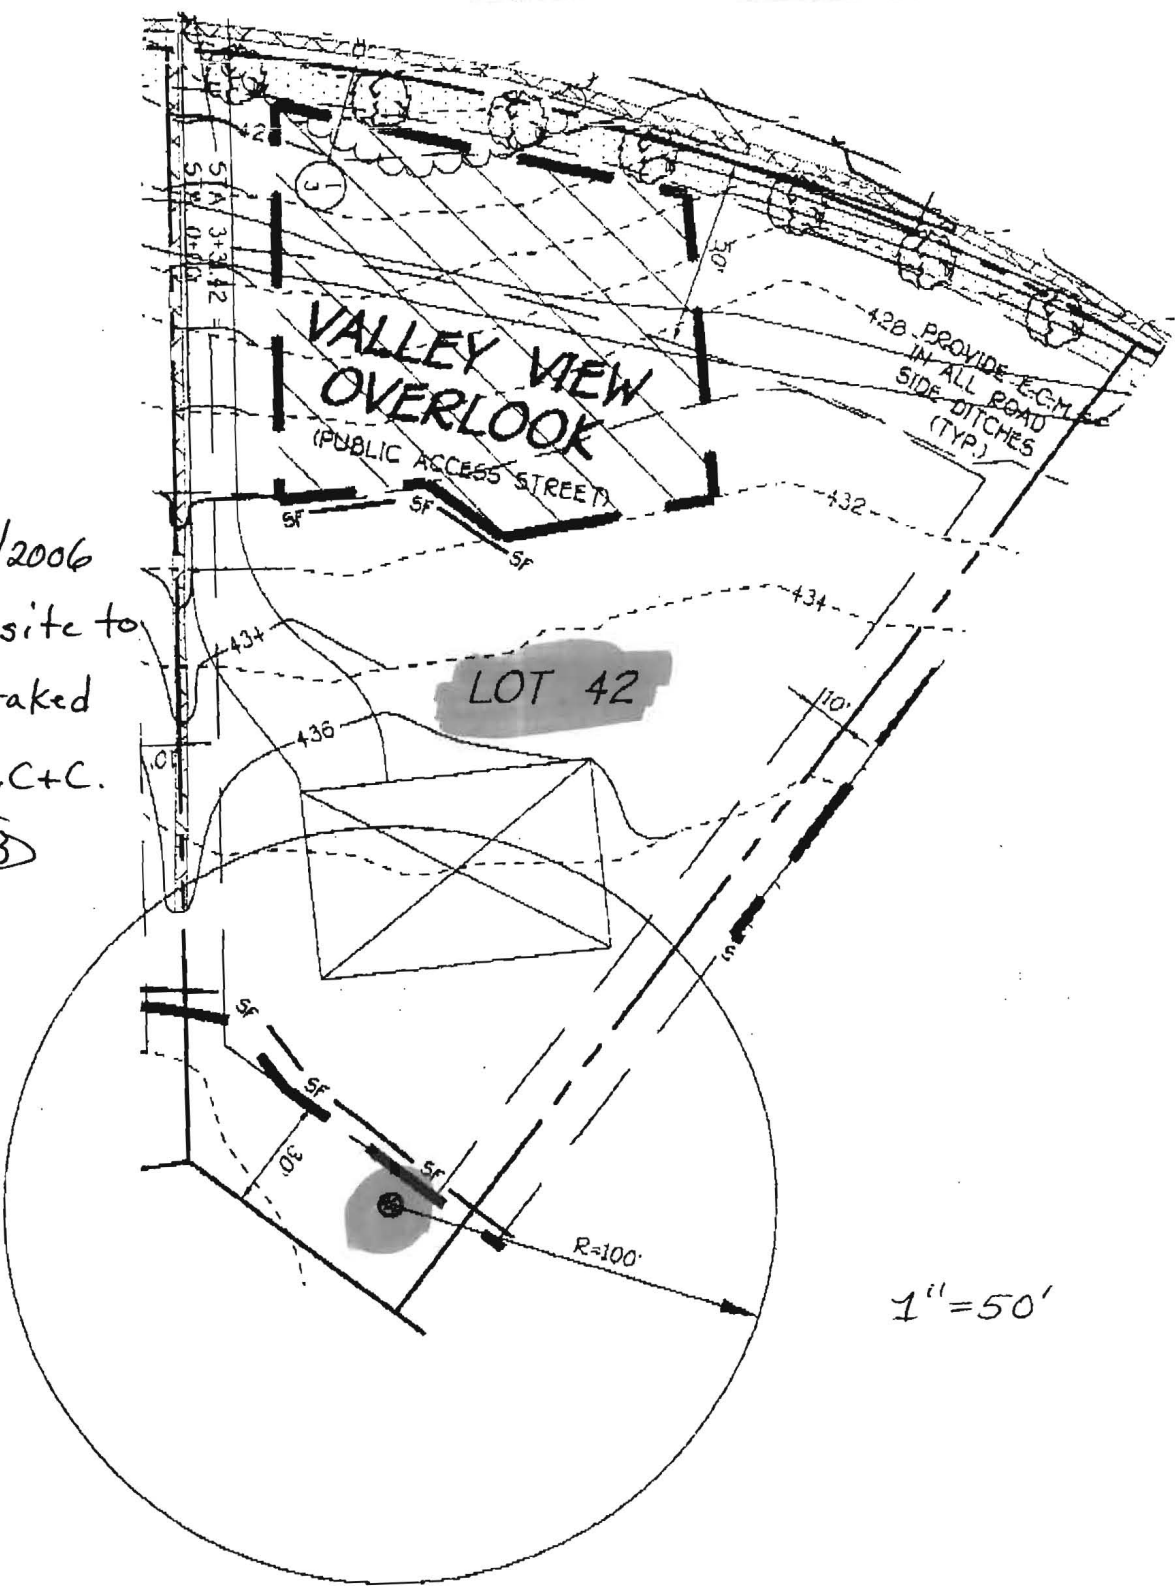 42
STA 3+31.42 =
STA 0+00
1
3
50'
VALLEY VIEW
OVERLOOK
(PUBLIC ACCESS STREET)
428
PROVIDE E.C.M.
IN ALL ROAD
SIDE DITCHES
(TYP.)
SF
SF
SF
432
/2006
site to
434
434
LOT 42
aked
10'
436
C+C.
SF
SF
30'
SF
R=100'
1"=50'